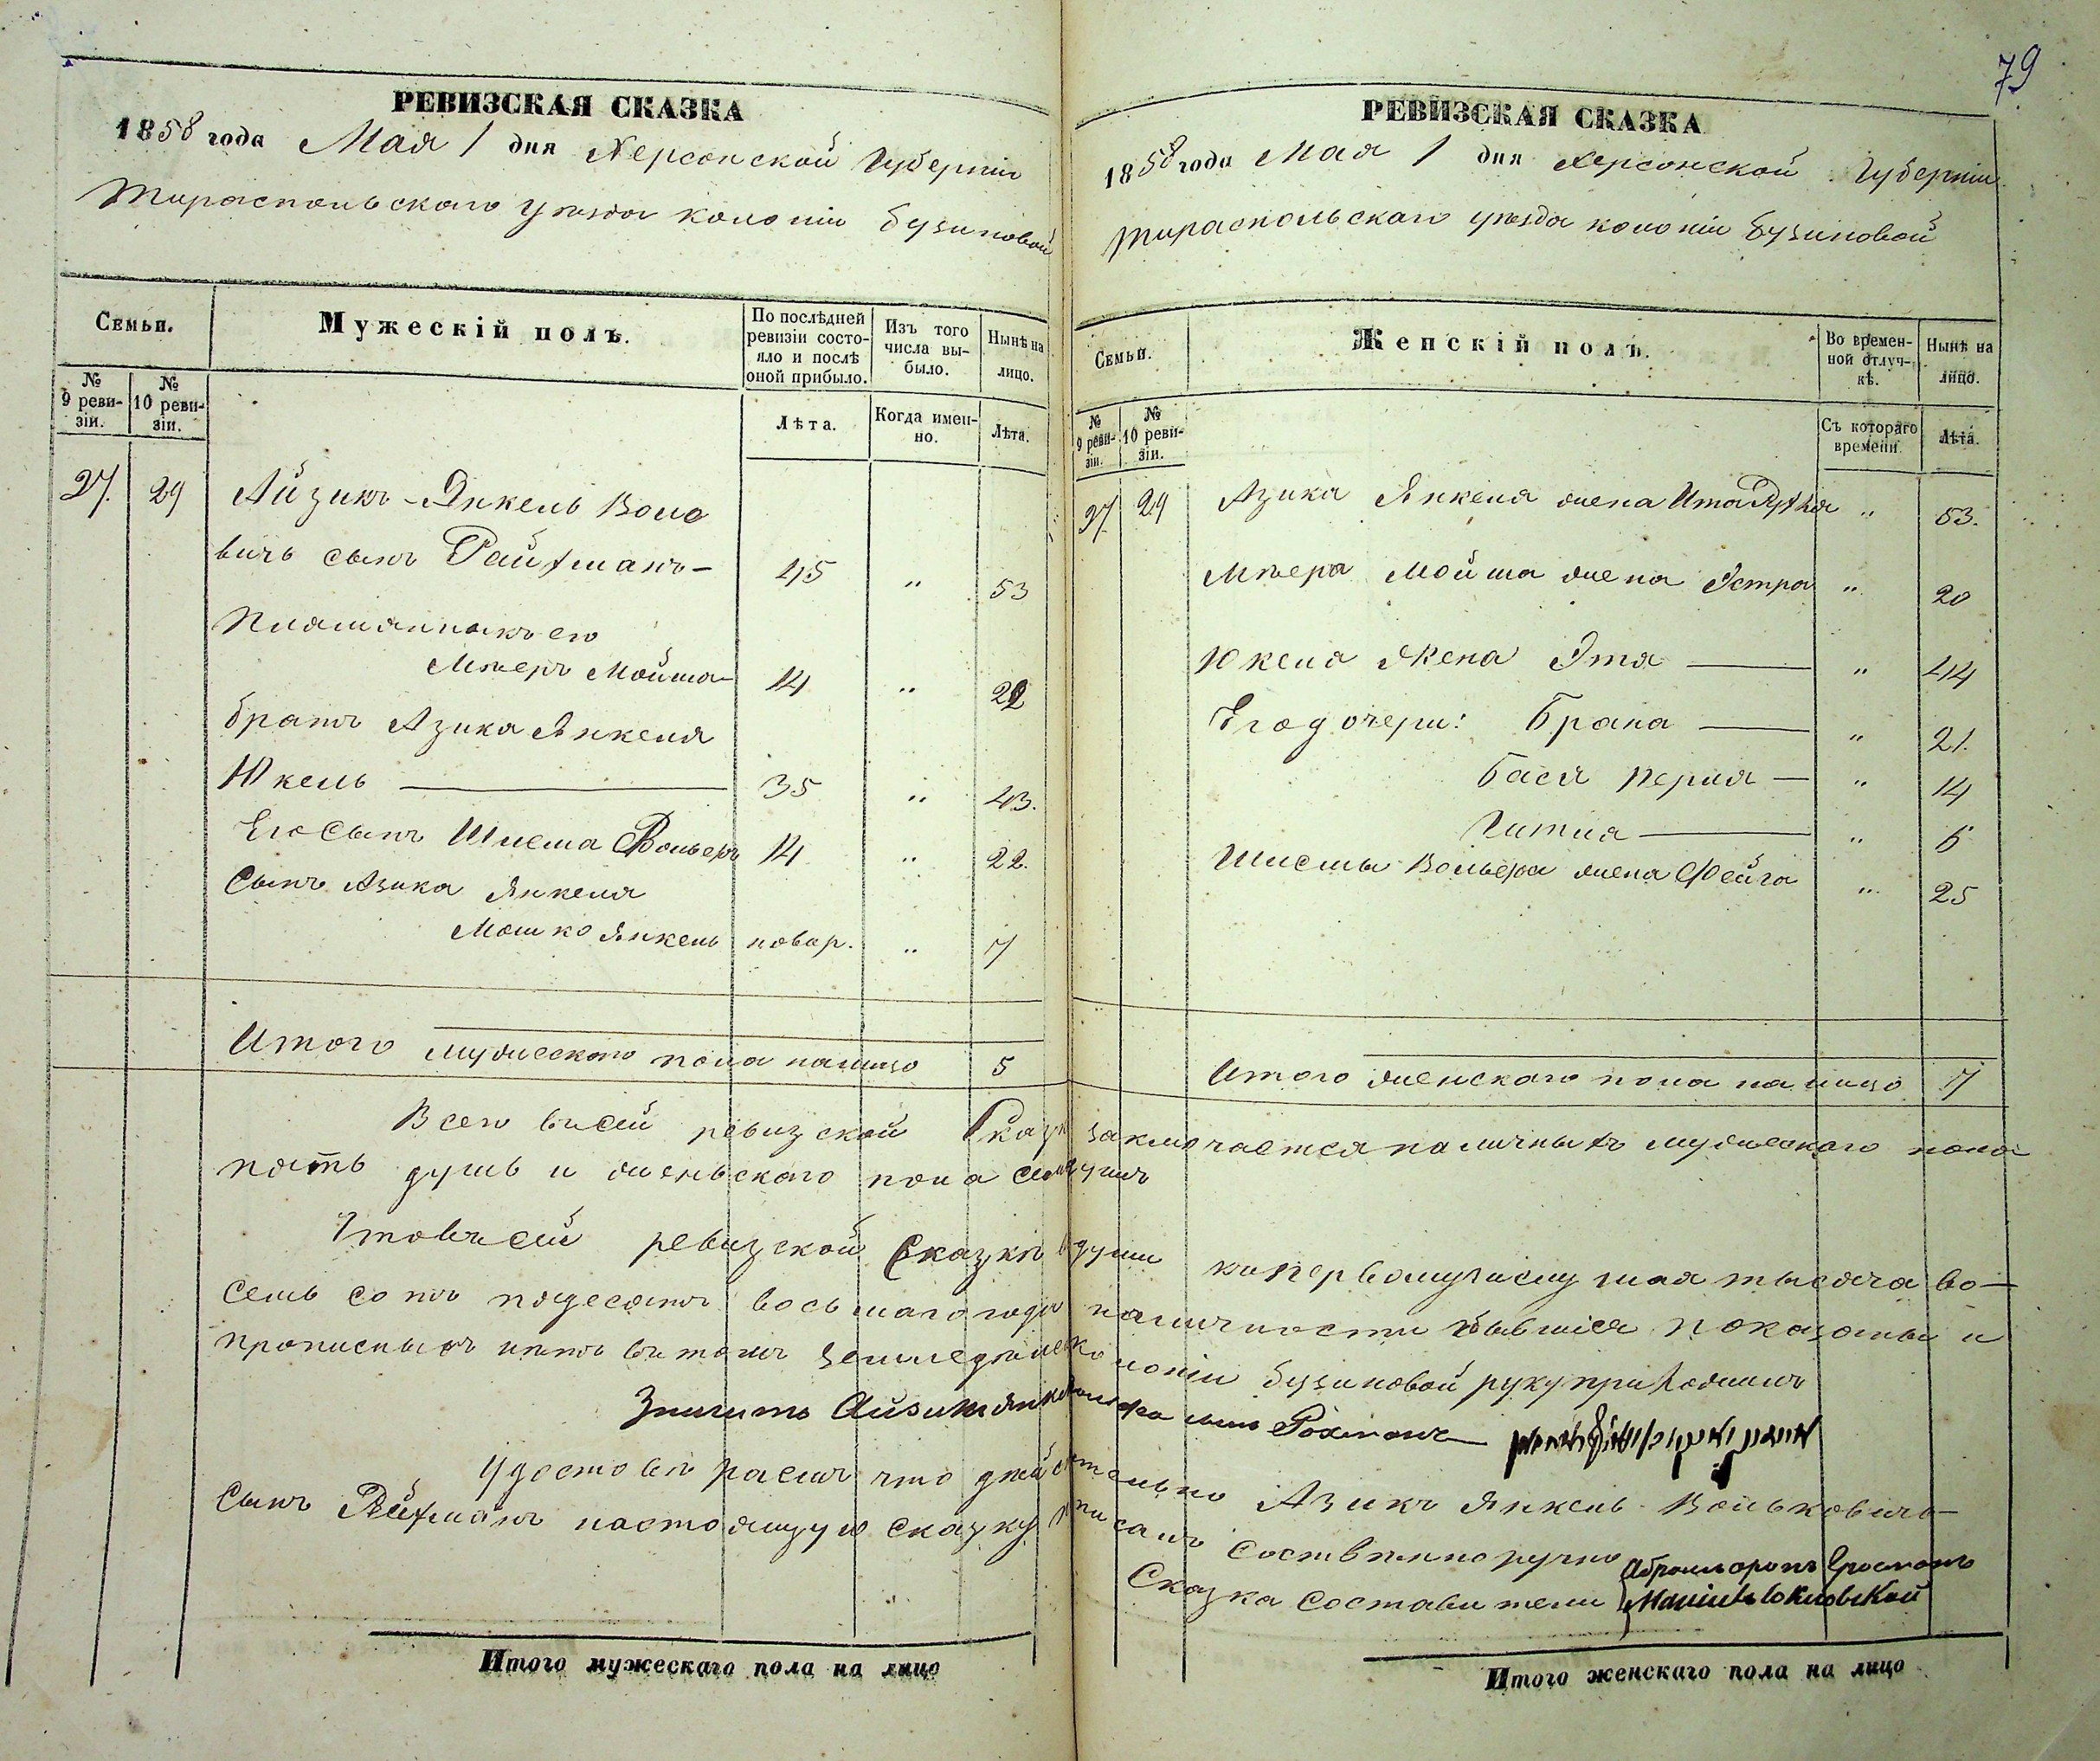 79
РЕВИЗСКАЯ СКАЗКА
1858 года Мая 1 дня Херсонской Губерніи
Тираспольскаго уѣзда колоніи Бузиновой
Семьи.
Мужескій полъ.
По послѣдней ревизіи состояло и послѣ оной прибыло.
Изъ того числа выбыло.
Нынѣ на лицо.
№ 9 ревизіи.
№ 10 ревизіи.
Лѣта.
Когда именно.
Лѣта.
27. 29 Айзикъ-Янкель Воло
вичь сынъ Райхманъ- 45 " 53
Племянникъ его
Мѣеръ Мойша- 14 " 22
братъ Азика Янкеля
Юкель 35 " 43.
Его Сынъ Шлема Вольеръ 14 " 22.
Сынъ Азика Янкеля
Мошко Янкель новор. " 7
Итого мужескаго пола налицо 5
РЕВИЗСКАЯ СКАЗКА
1858 года Мая 1 дня Херсонской Губерніи
Тираспольскаго уѣзда колоніи Бузиновой
Семьи.
Женскій полъ.
Во временной отлучкѣ.
Нынѣ на лицо.
№ 9 ревизіи.
№ 10 ревизіи.
Съ котораго времени.
Лѣта.
27. 29 Азика Янкеля жена Ита " 53.
Мѣера Мойша жена Эстра " 20
Юкеля Жена Этя " 44
Его дочери: Брана " 21.
Бася Перля " 14
Гитля " 6
Шлемы Вольера жена Фейга " 25
Итого женскаго пола налицо 7
Всего въсей ревизской Сказкѣ заключается наличныхъ мужескаго пола
пять душъ и женьскаго пола семь душъ
Что въ сей ревизской Сказкѣ въ души къ первому числу мая тысяча во-
семь сотъ пядесятъ восьмаго года наличности бывшія показаны и
прописныхъ нѣтъ въ томъ колоніи Бузиновой руку приложилъ
Айзикъ Янкель сынъ Рахманъ
Удостовѣраемъ что дѣйствтельно Азикъ Янкель Вольковичъ-
сынъ Рейхманъ настоящую сказку писалъ Собствѣнноручно
Сказка Составители Абрамъ Аронъ Гросманъ
Итого мужескаго пола на лицо
Итого женскаго пола на лицо